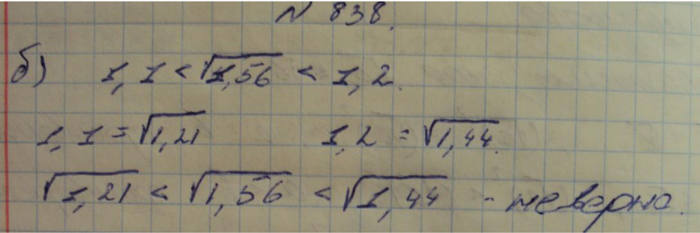 N 838.
б) 1,1 < √1,56 < 1,2.
1,1 = √1,21 1,2 = √1,44.
√1,21 < √1,56 < √1,44 - неверно.